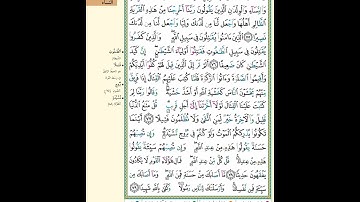 وَالنِّسَاءِ وَالْوِلْدَانِ الَّذِينَ يَقُولُونَ رَبَّنَا أَخْرِجْنَا مِنْ هَٰذِهِ الْقَرْيَةِ
الظَّالِمِ أَهْلُهَا وَاجْعَل لَّنَا مِن لَّدُنكَ وَلِيًّا وَاجْعَل لَّنَا مِن لَّدُنكَ
نَصِيرًا ٧٥ الَّذِينَ آمَنُوا يُقَاتِلُونَ فِي سَبِيلِ اللَّهِ وَالَّذِينَ كَفَرُوا
يُقَاتِلُونَ فِي سَبِيلِ الطَّاغُوتِ فَقَاتِلُوا أَوْلِيَاءَ الشَّيْطَانِ إِنَّ كَيْدَ
الشَّيْطَانِ كَانَ ضَعِيفًا ٧٦ أَلَمْ تَرَ إِلَى الَّذِينَ قِيلَ لَهُمْ كُفُّوا أَيْدِيَكُمْ
وَأَقِيمُوا الصَّلَاةَ وَآتُوا الزَّكَاةَ فَلَمَّا كُتِبَ عَلَيْهِمُ الْقِتَالُ إِذَا فَرِيقٌ
مِّنْهُمْ يَخْشَوْنَ النَّاسَ كَخَشْيَةِ اللَّهِ أَوْ أَشَدَّ خَشْيَةً وَقَالُوا رَبَّنَا لِمَ
كَتَبْتَ عَلَيْنَا الْقِتَالَ لَوْلَا أَخَّرْتَنَا إِلَىٰ أَجَلٍ قَرِيبٍ قُلْ مَتَاعُ الدُّنْيَا
قَلِيلٌ وَالْآخِرَةُ خَيْرٌ لِّمَنِ اتَّقَىٰ وَلَا تُظْلَمُونَ فَتِيلًا ٧٧ أَيْنَمَا
تَكُونُوا يُدْرِككُّمُ الْمَوْتُ وَلَوْ كُنتُمْ فِي بُرُوجٍ مُّشَيَّدَةٍ وَإِن تُصِبْهُمْ
حَسَنَةٌ يَقُولُوا هَٰذِهِ مِنْ عِندِ اللَّهِ وَإِن تُصِبْهُمْ سَيِّئَةٌ يَقُولُوا
هَٰذِهِ مِنْ عِندِكَ قُلْ كُلٌّ مِّنْ عِندِ اللَّهِ فَمَالِ هَٰؤُلَاءِ الْقَوْمِ لَا يَكَادُونَ
يَفْقَهُونَ حَدِيثًا ٧٨ مَّا أَصَابَكَ مِنْ حَسَنَةٍ فَمِنَ اللَّهِ وَمَا أَصَابَكَ مِن
سَيِّئَةٍ فَمِن نَّفْسِكَ وَأَرْسَلْنَاكَ لِلنَّاسِ رَسُولًا وَكَفَىٰ بِاللَّهِ شَهِيدًا ٧٩